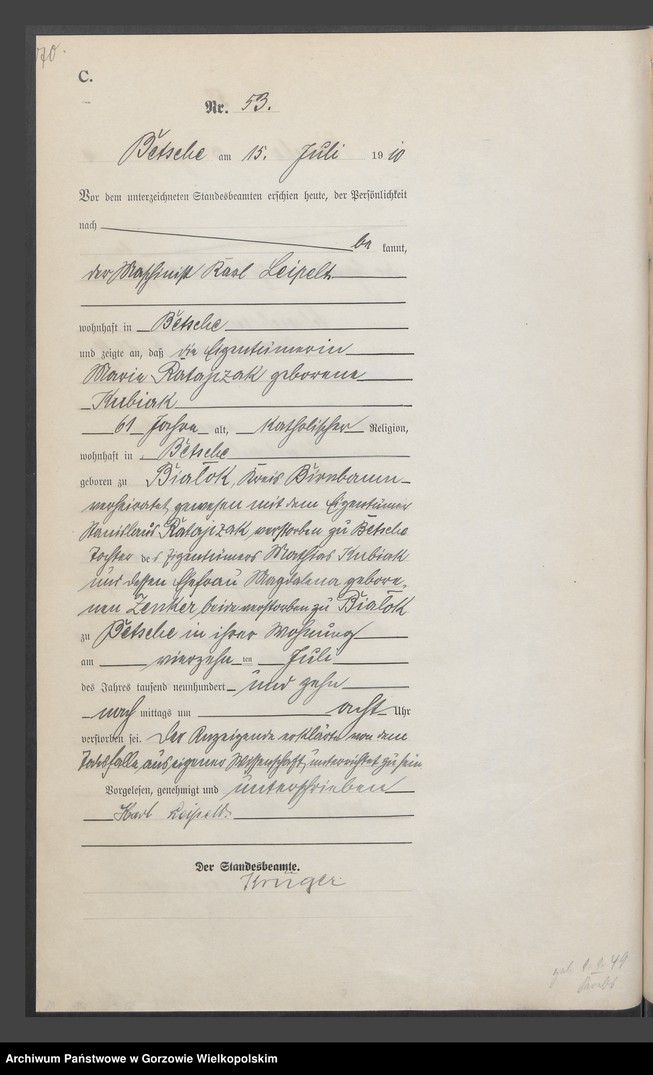 70.
C.
Nr. 53.
Betsche am 15. Juli 1910
Vor dem unterzeichneten Standesbeamten erschien heute, der Persönlichkeit
nach
be kannt,
der Maschinist Karl Leipelt
wohnhaft in Betsche
und zeigte an, daß die Eigentümerin
Marie Ratajzak geborene
Kubiak
61 Jahre alt, katholischer Religion,
wohnhaft in Betsche
geboren zu Bialok, Kreis Birnbaum
verheiratet gewesen mit dem Eigentümer
Stanislaus Ratajzak, verstorben zu Betsche
Tochter des Eigentümers Mathias Kubiak
und dessen Ehefrau Magdalena gebore-
nen Zenker, beide verstorben zu Bialok
zu Betsche in ihrer Wohnung
am vierzehn ten Juli
des Jahres tausend neunhundert und zehn
nach mittags um acht Uhr
verstorben sei. Der Anzeigende erklärte von dem
Todesfalle aus eigener Wissenschaft unterrichtet zu sein
Vorgelesen, genehmigt und unterschrieben
Karl Leipelt.
Der Standesbeamte.
Krüger
49
Archiwum Państwowe w Gorzowie Wielkopolskim